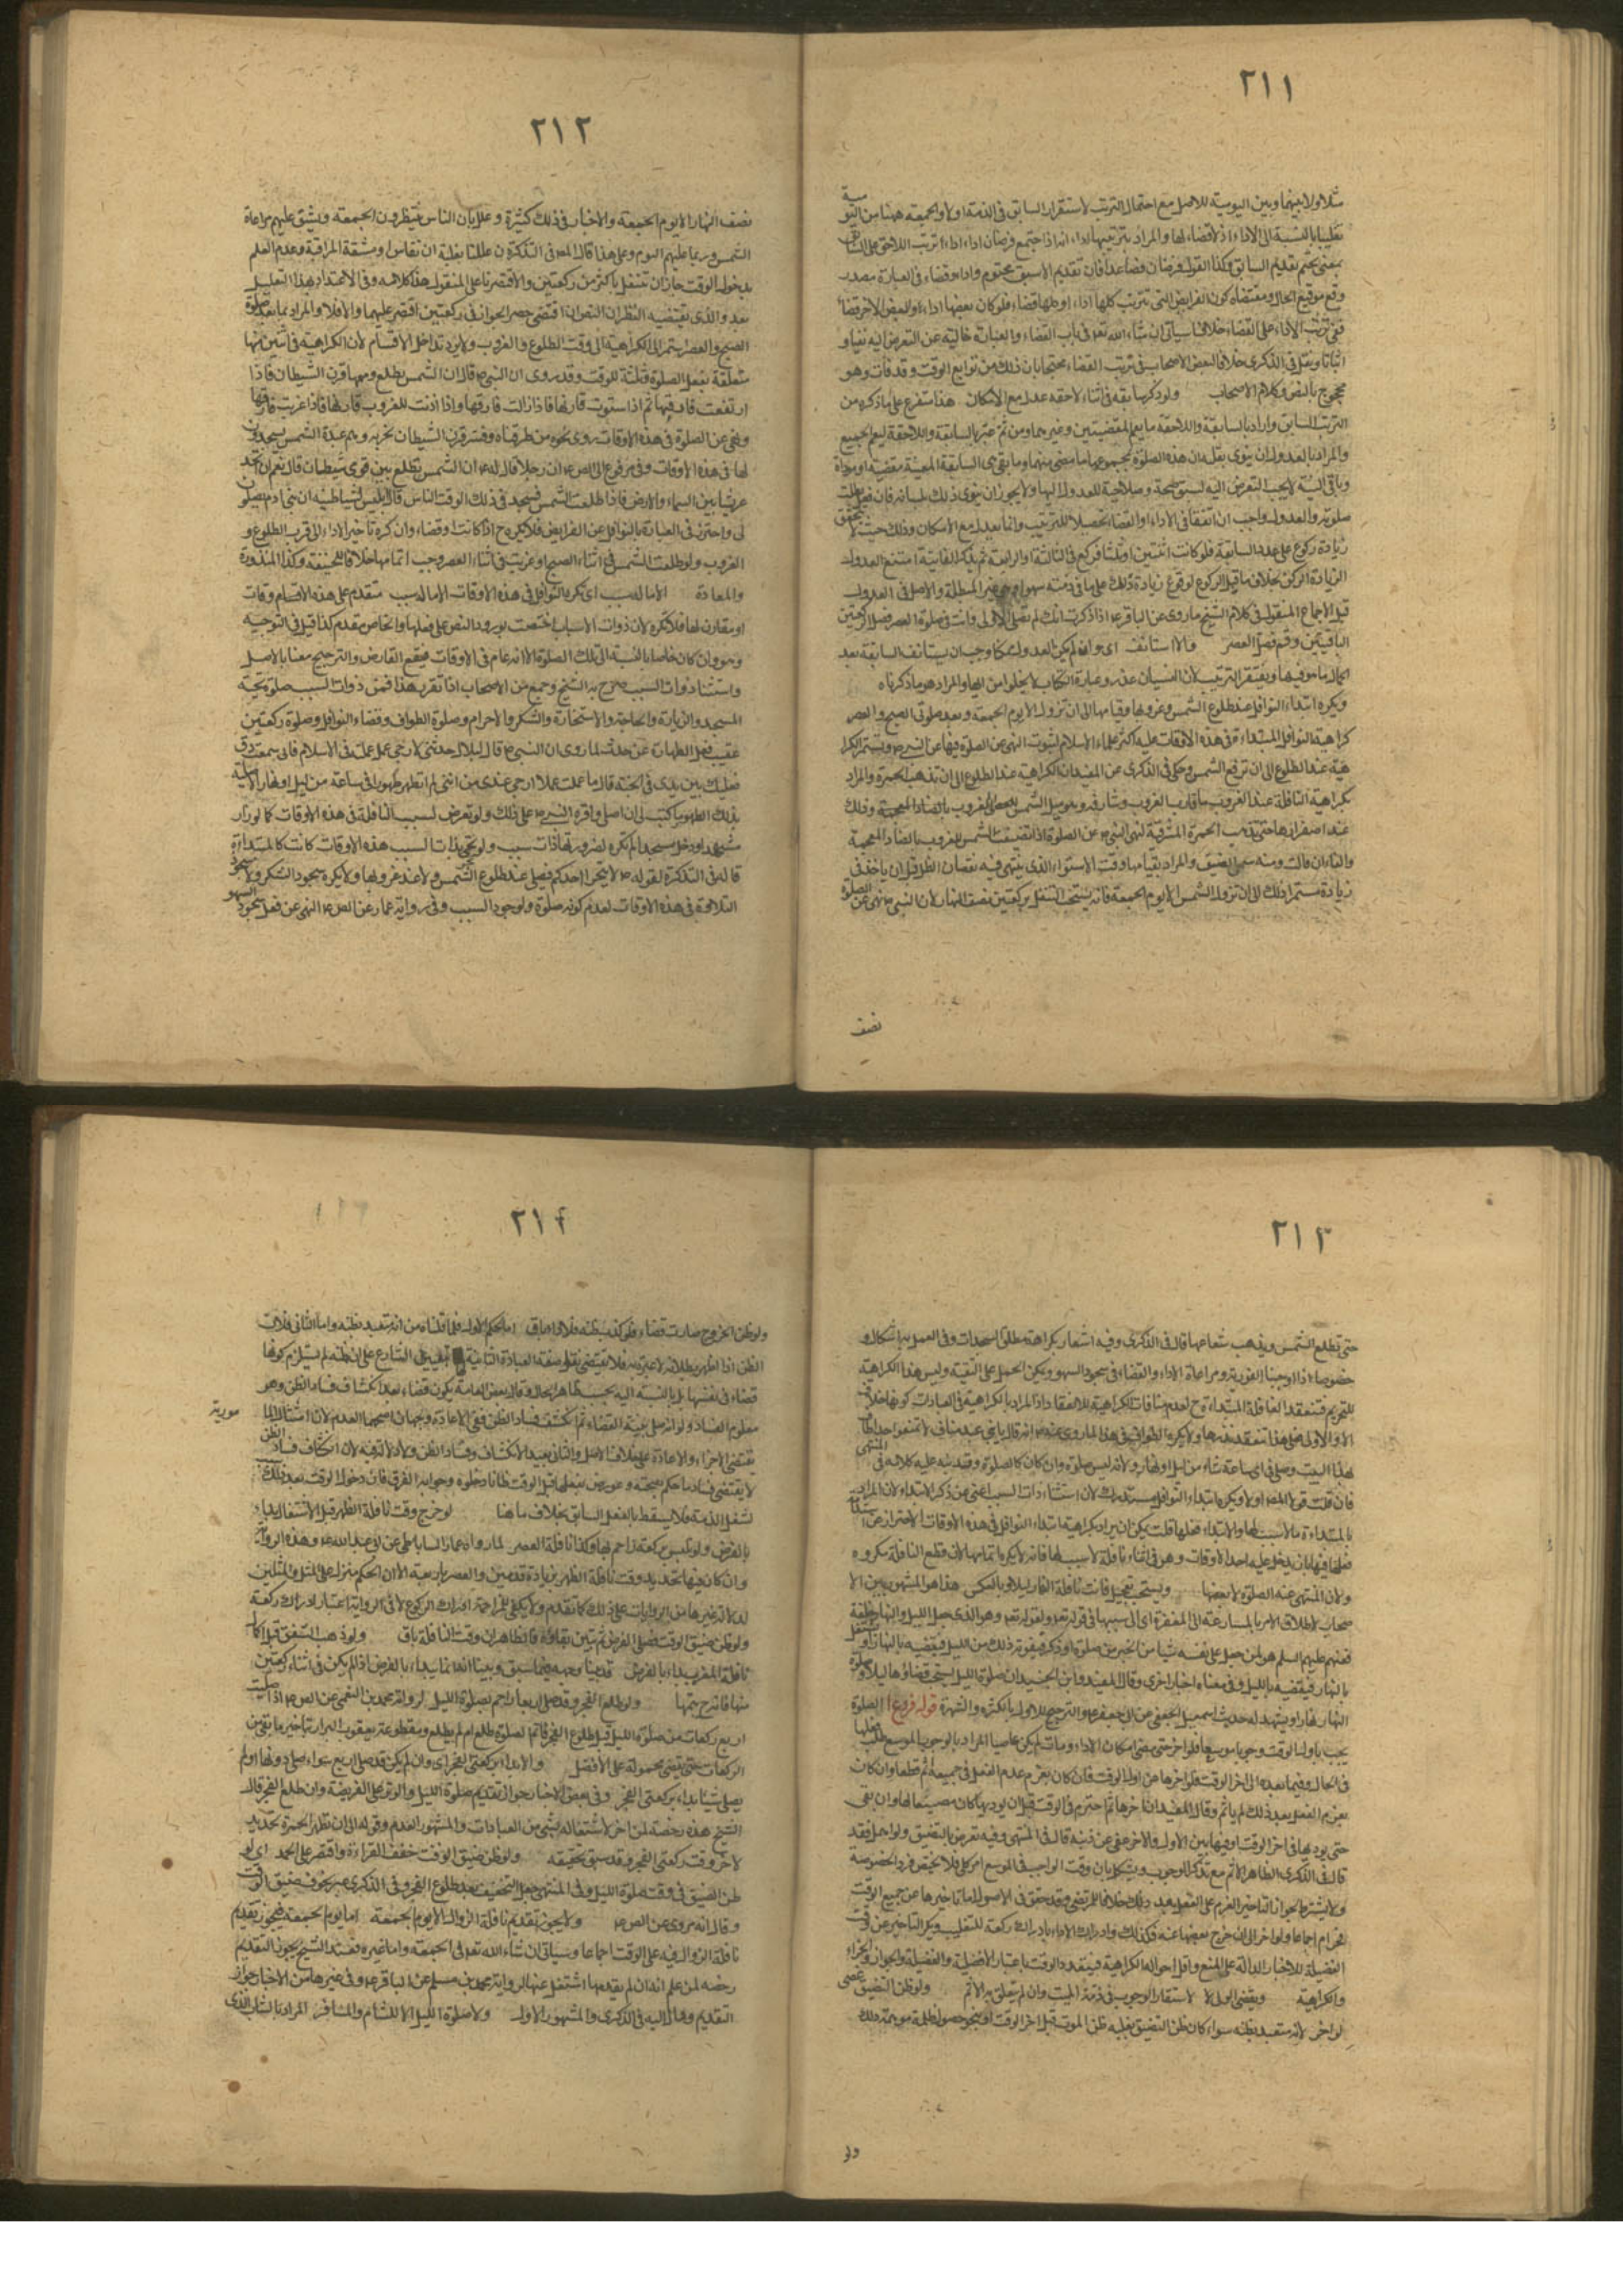 ٢١١
بمعنى تحتم تقديم السابق وكذا القول فى فرضان فصاعدا فان تقديم الاسبق محتوم واداء وقضاء فى العبارة مصدر
وقع موقع الحال ومقتضاه كون الفرايض التى تترتب كلها اداء او كلها قضاء فلو كان بعضها اداء والبعض الاخر قضاء
ففى ترتب الاداء على القضاء خلاف سياتى ان شاء الله تعه فى باب القضاء والعبارة خالية عن التعرض اليه نفيا و
اثباتا ونقل فى الذكرى خلافا لبعض الاصحاب فى ترتب القضاء محتجا بان ذلك من توابع الوقت وقد فات وهو
محجوج بالنص وكلام الاصحاب ولو ذكر سابقة فى اثناء لاحقة عدل مع الامكان هذا متفرع على ما ذكره من
والمراد بالعدول ان ينوى بقلبه ان هذه الصلوة بمجموعها ما مضى منها وما بقى هى السابقة المعينة مقضية او موداة
وباقى النية لا يجب التعرض اليه لسبق صحته وصلاحيته للعدول اليها ولا يجوز ان ينوى ذلك بلسانه فان فعل بطلت
صلوته والعدول واجب ان اتفقا فى الاداء والقضاء تحصيلا للترتيب وانما يعدل مع الامكان وذلك حيث لا يتحقق
زيادة ركوع على عدد السابقة فلو كانت اثنتين او ثلثا فركع فى الثالثة او الرابعة ثم يذكر الفايتة امتنع العدول
الباقيتين وقم فصل العصر والا استانف اى وان لم يكن العدول ممكنا وجب ان يستانف السابقة بعد
اكمال ما هو فيها ويغتفر الترتيب لان النسيان عذر وعبارة الكتاب لا يخلو من ايهام والمراد هو ما ذكرناه
ويكره ابتداء النوافل عند طلوع الشمس وغروبها وقيامها الى ان تزول الا يوم الجمعة وبعد صلوتى الصبح والعصر
كراهية النوافل المبتداة فى هذه الاوقات عليه اكثر علماء الاسلام لثبوت النهى عن الصلوة فيها عن النبى ص ويستمر الكرا
هية عند الطلوع الى ان ترتفع الشمس وحكى فى الذكرى عن المفيد ان الكراهية عند الطلوع الى ان تذهب الحمرة والمراد
بكراهية النافلة عند الغروب ما قارب الغروب وشارفه وهو ميل الشمس للغروب بالضاد المعجمة وذلك
عند اصفرارها حتى يذهب الحمرة المشرقية لنهى النبى ص عن الصلوة اذا تضيفت الشمس للغروب بالضاد المعجمة
والتاء ان مالت ومنه سمى الضيف والمراد بقيامها وقت الاستواء الذى ينتهى فيه نقصان الظل قبل ان ياخذ فى
زيادة مستمرا ذلك الى ان تزول الشمس الا يوم الجمعة فانه يستحب التنفل بركعتين نصف النهار لان النبى ص نهى عن الصلوة
نصف
٢١٢
نصف النهار الا يوم الجمعة والاخبار فى ذلك كثيرة وعلل بان الناس ينتظرون الجمعة ويشق عليهم مراعاة
الشمس وربما غلبهم النوم وعلى هذا قال المصه فى التذكرة ان عللنا بغلبة النعاس او مشقة المراقبة وعدم العلم
بدخول الوقت جاز ان تتنفل باكثر من ركعتين والا اقتصرنا على المنقول هذا كلامه وفى الاعتداد بهذا التعليل
بعد والذى يقتضيه النظر ان النص ان اقتضى حصر الجواز فى ركعتين اقتصر عليهما والا فلا والمراد بما بعد صلوة
الصبح والعصر استمرار الكراهية الى وقت الطلوع والغروب ولا يرد تداخل الاقسام لان الكراهية فى اثنين منها
متعلقة بفعل الصلوة وثلثة للوقت وقد روى ان النبى ص قال ان الشمس تطلع ومعها قرن الشيطان فاذا
ارتفعت فارقها ثم اذا استوت قارنها فاذا زالت فارقها واذا دنت للغروب قارنها فاذا غربت فارقها
ونهى عن الصلوة فى هذه الاوقات روى نحوه من طرقنا وفسر قرن الشيطان بحزبه وهم عبدة الشمس يسجدون
لها فى هذه الاوقات وفى مرفوع الى الص ع ان رجلا قال له ع ان الشمس تطلع بين قرنى شيطان قال نعم ان اتخذ
عرشا بين السماء والارض فاذا طلعت الشمس فسجد فى ذلك الوقت الناس قال ابليس لشياطينه ان بنى ادم يصلون
لى واحترز فى العبارة بالنوافل عن الفرايض فلا يكره ح اذا كانت قضاء وان كره تاخير الاداء الى قرب الطلوع و
الغروب ولو طلعت الشمس فى اثناء الصبح او غربت فى اثناء العصر وجب اتمامها خلافا لابى حنيفة وكذا المنذورة
والمعادة الا ما له سبب اى تكره النوافل فى هذه الاوقات الا ما له سبب متقدم على هذه الاوقات
او مقارن لها فلا تكره لان ذوات الاسباب اختصت بورود النص على فعلها والخاص مقدم كذا قيل فى التوجيه
وهو وان كان خاصا بالنسبة الى تلك الصلوة الا انه عام فى الاوقات فيقع التعارض والترجيح معنا بالاصل
واستثناء ذوات السبب صرح به الشيخ وجمع من الاصحاب اذا تقرر هذا فمن ذوات السبب صلوة تحية
المسجد والزيارة والحاجة والاستخارة والشكر والاحرام وصلوة الطواف وقضاء النوافل وصلوة ركعتين
عقيب فعل الطهارة عن حدث لما روى ان النبى ص قال لبلال حدثنى بارجى عمل عملته فى الاسلام فانى سمعت دق
نعليك بين يدى فى الجنة قال ما عملت عملا ارجى عندى من اننى لم اتطهر طهورا فى ساعة من ليل او نهار الا صليت
بذلك الطهور ما كتب لى ان اصلى واقره النبى ص على ذلك ولو تعرض لسبب النافلة فى هذه الاوقات كما لو زار
مشهدا او دخل مسجدا لم تكره لصيرورتها ذات سبب ولو تحرى بذات السبب هذه الاوقات كانت كالمبتداة
قاله فى التذكرة لقوله ص لا يتحرا احدكم فيصلى عند طلوع الشمس ولا عند غروبها ولا يكره سجود الشكر ولا سجود
التلاوة فى هذه الاوقات لعدم كونه صلوة ولوجود السبب وفى رواية عمار عن الص ع النهى عن فعل سجود السهو
٢١٣
حتى تطلع الشمس ويذهب شعاعها قال فى الذكرى وفيه اشعار بكراهة مطلق السجدات وفى العمل به اشكال و
خصوصا اذا اوجبنا الفورية ومراعاة الاداء والقضاء فى سجود السهو ويمكن الحمل على التقية وليس هذا الكراهية
للتحريم فتنعقد النافلة المبتداة ح لعدم منافات الكراهية للانعقاد اذ المراد بالكراهية فى العبادات كونها خلاف
الاولى فعلى هذا تنعقد نذرها ولا يكره الطواف فى هذا لما روى عنه ص انه قال يا بنى عبد مناف لا تمنعوا احدا طاف
بهذا البيت وصلى فى اى ساعة شاء من ليل او نهار ولانه ليس صلوة وان كان كالصلوة وقد نبه عليه كلامه فى المنتهى
فان قلت قول المصه اولا ويكره ابتداء النوافل مستدرك لان استثناء ذات السبب اغنى عن ذكر الابتداء لان المراد
ولان المنهى عنه الصلوة لا بعضها ويستحب تعجيل فائت نافلة النهار ليلا وبالعكس هذا هو المشهور بين الا
صحاب لاطلاق الامر بالمسارعة الى المغفرة اى الى سببها فى قوله تعه ولقوله تعه وهو الذى جعل الليل والنهار خلفة
بالنهار فيقضيه بالليل وفى معناه اخبار اخرى وقال المفيد وابن الجنيد ان صلوة الليل يستحب قضاؤها ليلا وصلوة
النهار نهارا ويشهد له حديث اسمعيل الجعفى عن ابى جعفر ع والترجيح للاول بالكثرة والشهرة قوله فروع ا الصلوة
يجب باول الوقت وجوبا موسعا فلو اخر حتى مضى امكان الاداء ومات لم يكن عاصيا المراد بالوجوب الموسع طلب فعلها
فى الحال وفيما بعده الى اخر الوقت فلو اخرها عن اول الوقت فان كان بعزم عدم الفعل فى جميعه اثم قطعا وان كان
بعزم الفعل بعد ذلك لم ياثم وقال المفيد ان اخرها ثم اخترم فى الوقت قبل ان يوديها كان مضيعا لها وان بقى
حتى يوديها فى اخر الوقت او فيما بين الاول والاخر عفى عن ذنبه قال فى المنتهى وفيه تعرض بالتضيق ولو اهمل فقد
ولا يشترط لجواز التاخير العزم على الفعل بعد ذلك خلافا للمرتضى وقد حقق فى الاصول اما تاخيرها عن جميع الوقت
فحرام اجماعا ولو اخر الى ان خرج بعضها عنه فكذلك وادراك الاداء بادراك ركعة للتغليب ويكره التاخير عن وقت
الفضيلة للاخبار الدالة على المنع واقل احواله الكراهية فيتعدد الوقت باعتبار الافضلية والفضيلة والجواز والاجزاء
والكراهية ويقضى الولى لاستقرار الوجوب فى ذمة الميت وان لم يتعلق به الاثم ولو ظن التضيق عصى
لو اخر لانه متعبد بظنه سواء كان ظن التضيق بغلبة ظن الموت قبل اخر الوقت او بنحو حصول ظلمة موهمة ذلك
ولو
٢١٤
ولو ظن الخروج صارت قضاء فلو كذب ظنه فالاداء باق اما الحكم الاول فلما قلناه من انه متعبد بظنه واما الثانى فلان
قضاء فى نفسها بل بالنسبة اليه بحسب ظاهر الحال وقال بعض العامة يكون قضاء بعد انكشاف فساد الظن وهو
معلوم الفساد ولو انه صلى بنية القضاء ثم انكشف فساد الظن ففى الاعادة وجهان اصحهما العدم لان امتثال المامورية
يقتضى الاجزاء والاعادة على خلاف الاصل والثانى يعيد لانكشاف فساد الظن ولا دلالة فيه لان انكشاف فساد الظن
لا يقتضى فساد ما حكم بصحته وعورض بفعلها قبل الوقت ظانا دخوله وجوابه الفرق فان دخول الوقت بعد ذلك
لشغل الذمة فلا يسقط بالفعل السابق بخلاف ما هنا لو خرج وقت نافلة الظهر قبل الاشتغال بداء
بالفرض ولو تلبس بركعة زاحم بها وكذا نافلة العصر لما رواه عمار الساباطى عن ابى عبد الله ع وهذه الرواية
وان كان فيها تحديد وقت نافلة الظهر بزيادة قدمين والعصر باربعة الا ان الحكم منزل على المثل والمثلين
لدلالة غيرها من الروايات على ذلك كما تقدم ولا يكفى للمزاحمة ادراك الركوع لان فى الرواية اعتبار ادراك ركعة
ولو ظن ضيق الوقت فصلى الفرض ثم تبين بقاؤه فالظاهر ان وقت النافلة باق ولو ذهب الشفق قبل اكمال
نافلة المغرب بداء بالفرض قد بينا وجهه فيما سبق وبينا انه انما يبداء بالفرض اذا لم يكن فى اثناء ركعتين
منها فانه ح يتمها ولو طلع الفجر وقد صلى اربعا زاحم بصلوة الليل لرواية محمد بن النعمن عن الص ع اذا صليت
اربع ركعات من صلوة الليل قبل طلوع الفجر فاتم الصلوة طلع ام لم يطلع ومقطوعة يعقوب البزاز بتاخير ما بقى من
الركعات حتى يقضى محمولة على الافضل والا بدا بركعتى الفجر اى وان لم يكن قد صلى اربع سواء صلى دونها او لم
يصل شيئا بداء بركعتى الفجر وفى بعض الاخبار جواز تقديم صلوة الليل والوتر على الفريضة وان طلع الفجر قال
الشيخ هذه رخصة لمن اخر لاشتغاله بشئ من العبادات والمشهور العدم وقوله الى ان تظهر الحمرة تحديد
لاخر وقت ركعتى الفجر وقد سبق تحقيقه ولو ظن ضيق الوقت خفف القراءة واقتصر على الحمد اى لو
ظن الضيق فى وقت صلوة الليل وفى المنتهى جعل التخفيف بعد طلوع الفجر وفى الذكرى عبر بخوف ضيق الوقت
وقال انه مروى عن الص ع ولا يجوز تقديم نافلة الزوال الا يوم الجمعة اما يوم الجمعة فيجوز تقديم
نافلة الزوال فيه على الوقت اجماعا وسياتى ان شاء الله تعه فى الجمعة واما غيره فعند الشيخ يجوز التقديم
رخصة لمن علم انه ان لم يقدمها اشتغل عنها لرواية محمد بن مسلم عن الباقر ع وفى غيرها من الاخبار جواز
التقديم ومال اليه فى الذكرى والمشهور الاول ولا صلوة الليل الا للشاب والمسافر المراد بالشاب الذى